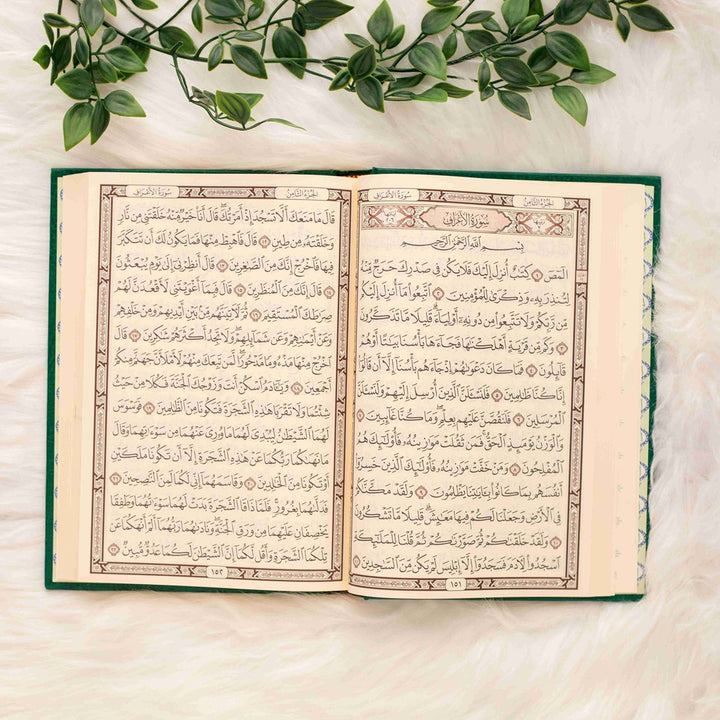 الجُزْءُ الثَّامِنُ سُورَةُ الأَعْرَافِ
سُورَةُ الأَعْرَافِ
بِسْمِ اللَّهِ الرَّحْمَٰنِ الرَّحِيمِ
الٓمٓصٓ ١ كِتَٰبٌ أُنزِلَ إِلَيْكَ فَلَا يَكُن فِي صَدْرِكَ حَرَجٌ مِّنْهُ
لِتُنذِرَ بِهِۦ وَذِكْرَىٰ لِلْمُؤْمِنِينَ ٢ ٱتَّبِعُوا۟ مَآ أُنزِلَ إِلَيْكُم
مِّن رَّبِّكُمْ وَلَا تَتَّبِعُوا۟ مِن دُونِهِۦٓ أَوْلِيَآءَ ۗ قَلِيلًا مَّا تَذَكَّرُونَ
٣ وَكَم مِّن قَرْيَةٍ أَهْلَكْنَٰهَا فَجَآءَهَا بَأْسُنَا بَيَٰتًا أَوْ هُمْ
قَآئِلُونَ ٤ فَمَا كَانَ دَعْوَىٰهُمْ إِذْ جَآءَهُم بَأْسُنَآ إِلَّآ أَن قَالُوٓا۟
إِنَّا كُنَّا ظَٰلِمِينَ ٥ فَلَنَسْـَٔلَنَّ ٱلَّذِينَ أُرْسِلَ إِلَيْهِمْ وَلَنَسْـَٔلَنَّ
ٱلْمُرْسَلِينَ ٦ فَلَنَقُصَّنَّ عَلَيْهِم بِعِلْمٍ ۖ وَمَا كُنَّا غَآئِبِينَ ٧
وَٱلْوَزْنُ يَوْمَئِذٍ ٱلْحَقُّ ۚ فَمَن ثَقُلَتْ مَوَٰزِينُهُۥ فَأُو۟لَٰٓئِكَ هُمُ
ٱلْمُفْلِحُونَ ٨ وَمَنْ خَفَّتْ مَوَٰزِينُهُۥ فَأُو۟لَٰٓئِكَ ٱلَّذِينَ خَسِرُوٓا۟
أَنفُسَهُم بِمَا كَانُوا۟ بِـَٔايَٰتِنَا يَظْلِمُونَ ٩ وَلَقَدْ مَكَّنَّٰكُمْ
فِي ٱلْأَرْضِ وَجَعَلْنَا لَكُمْ فِيهَا مَعَٰيِشَ ۗ قَلِيلًا مَّا تَشْكُرُونَ
١٠ وَلَقَدْ خَلَقْنَٰكُمْ ثُمَّ صَوَّرْنَٰكُمْ ثُمَّ قُلْنَا لِلْمَلَٰٓئِكَةِ
ٱسْجُدُوا۟ لِـَٔادَمَ فَسَجَدُوٓا۟ إِلَّآ إِبْلِيسَ لَمْ يَكُن مِّنَ ٱلسَّٰجِدِينَ ١١
١٥١
الجُزْءُ الثَّامِنُ سُورَةُ الأَعْرَافِ
قَالَ مَا مَنَعَكَ أَلَّا تَسْجُدَ إِذْ أَمَرْتُكَ ۖ قَالَ أَنَا۠ خَيْرٌ مِّنْهُ خَلَقْتَنِي مِن نَّارٍ
وَخَلَقْتَهُۥ مِن طِينٍ ١٢ قَالَ فَٱهْبِطْ مِنْهَا فَمَا يَكُونُ لَكَ أَن تَتَكَبَّرَ
فِيهَا فَٱخْرُجْ إِنَّكَ مِنَ ٱلصَّٰغِرِينَ ١٣ قَالَ أَنظِرْنِيٓ إِلَىٰ يَوْمِ يُبْعَثُونَ
١٤ قَالَ إِنَّكَ مِنَ ٱلْمُنظَرِينَ ١٥ قَالَ فَبِمَآ أَغْوَيْتَنِي لَأَقْعُدَنَّ لَهُمْ
صِرَٰطَكَ ٱلْمُسْتَقِيمَ ١٦ ثُمَّ لَـَٔاتِيَنَّهُم مِّنۢ بَيْنِ أَيْدِيهِمْ وَمِنْ خَلْفِهِمْ
وَعَنْ أَيْمَٰنِهِمْ وَعَن شَمَآئِلِهِمْ ۖ وَلَا تَجِدُ أَكْثَرَهُمْ شَٰكِرِينَ ١٧ قَالَ
ٱخْرُجْ مِنْهَا مَذْءُومًا مَّدْحُورًا ۖ لَّمَن تَبِعَكَ مِنْهُمْ لَأَمْلَأَنَّ جَهَنَّمَ مِنكُمْ
أَجْمَعِينَ ١٨ وَيَٰٓـَٔادَمُ ٱسْكُنْ أَنتَ وَزَوْجُكَ ٱلْجَنَّةَ فَكُلَا مِنْ حَيْثُ
شِئْتُمَا وَلَا تَقْرَبَا هَٰذِهِ ٱلشَّجَرَةَ فَتَكُونَا مِنَ ٱلظَّٰلِمِينَ ١٩ فَوَسْوَسَ
لَهُمَا ٱلشَّيْطَٰنُ لِيُبْدِيَ لَهُمَا مَا وُۥرِيَ عَنْهُمَا مِن سَوْءَٰتِهِمَا وَقَالَ
مَا نَهَىٰكُمَا رَبُّكُمَا عَنْ هَٰذِهِ ٱلشَّجَرَةِ إِلَّآ أَن تَكُونَا مَلَكَيْنِ
أَوْ تَكُونَا مِنَ ٱلْخَٰلِدِينَ ٢٠ وَقَاسَمَهُمَآ إِنِّي لَكُمَا لَمِنَ ٱلنَّٰصِحِينَ ٢١
فَدَلَّىٰهُمَا بِغُرُورٍ ۚ فَلَمَّا ذَاقَا ٱلشَّجَرَةَ بَدَتْ لَهُمَا سَوْءَٰتُهُمَا وَطَفِقَا
يَخْصِفَانِ عَلَيْهِمَا مِن وَرَقِ ٱلْجَنَّةِ ۖ وَنَادَىٰهُمَا رَبُّهُمَآ أَلَمْ أَنْهَكُمَا عَن
تِلْكُمَا ٱلشَّجَرَةِ وَأَقُل لَّكُمَآ إِنَّ ٱلشَّيْطَٰنَ لَكُمَا عَدُوٌّ مُّبِينٌ ٢٢
١٥٢